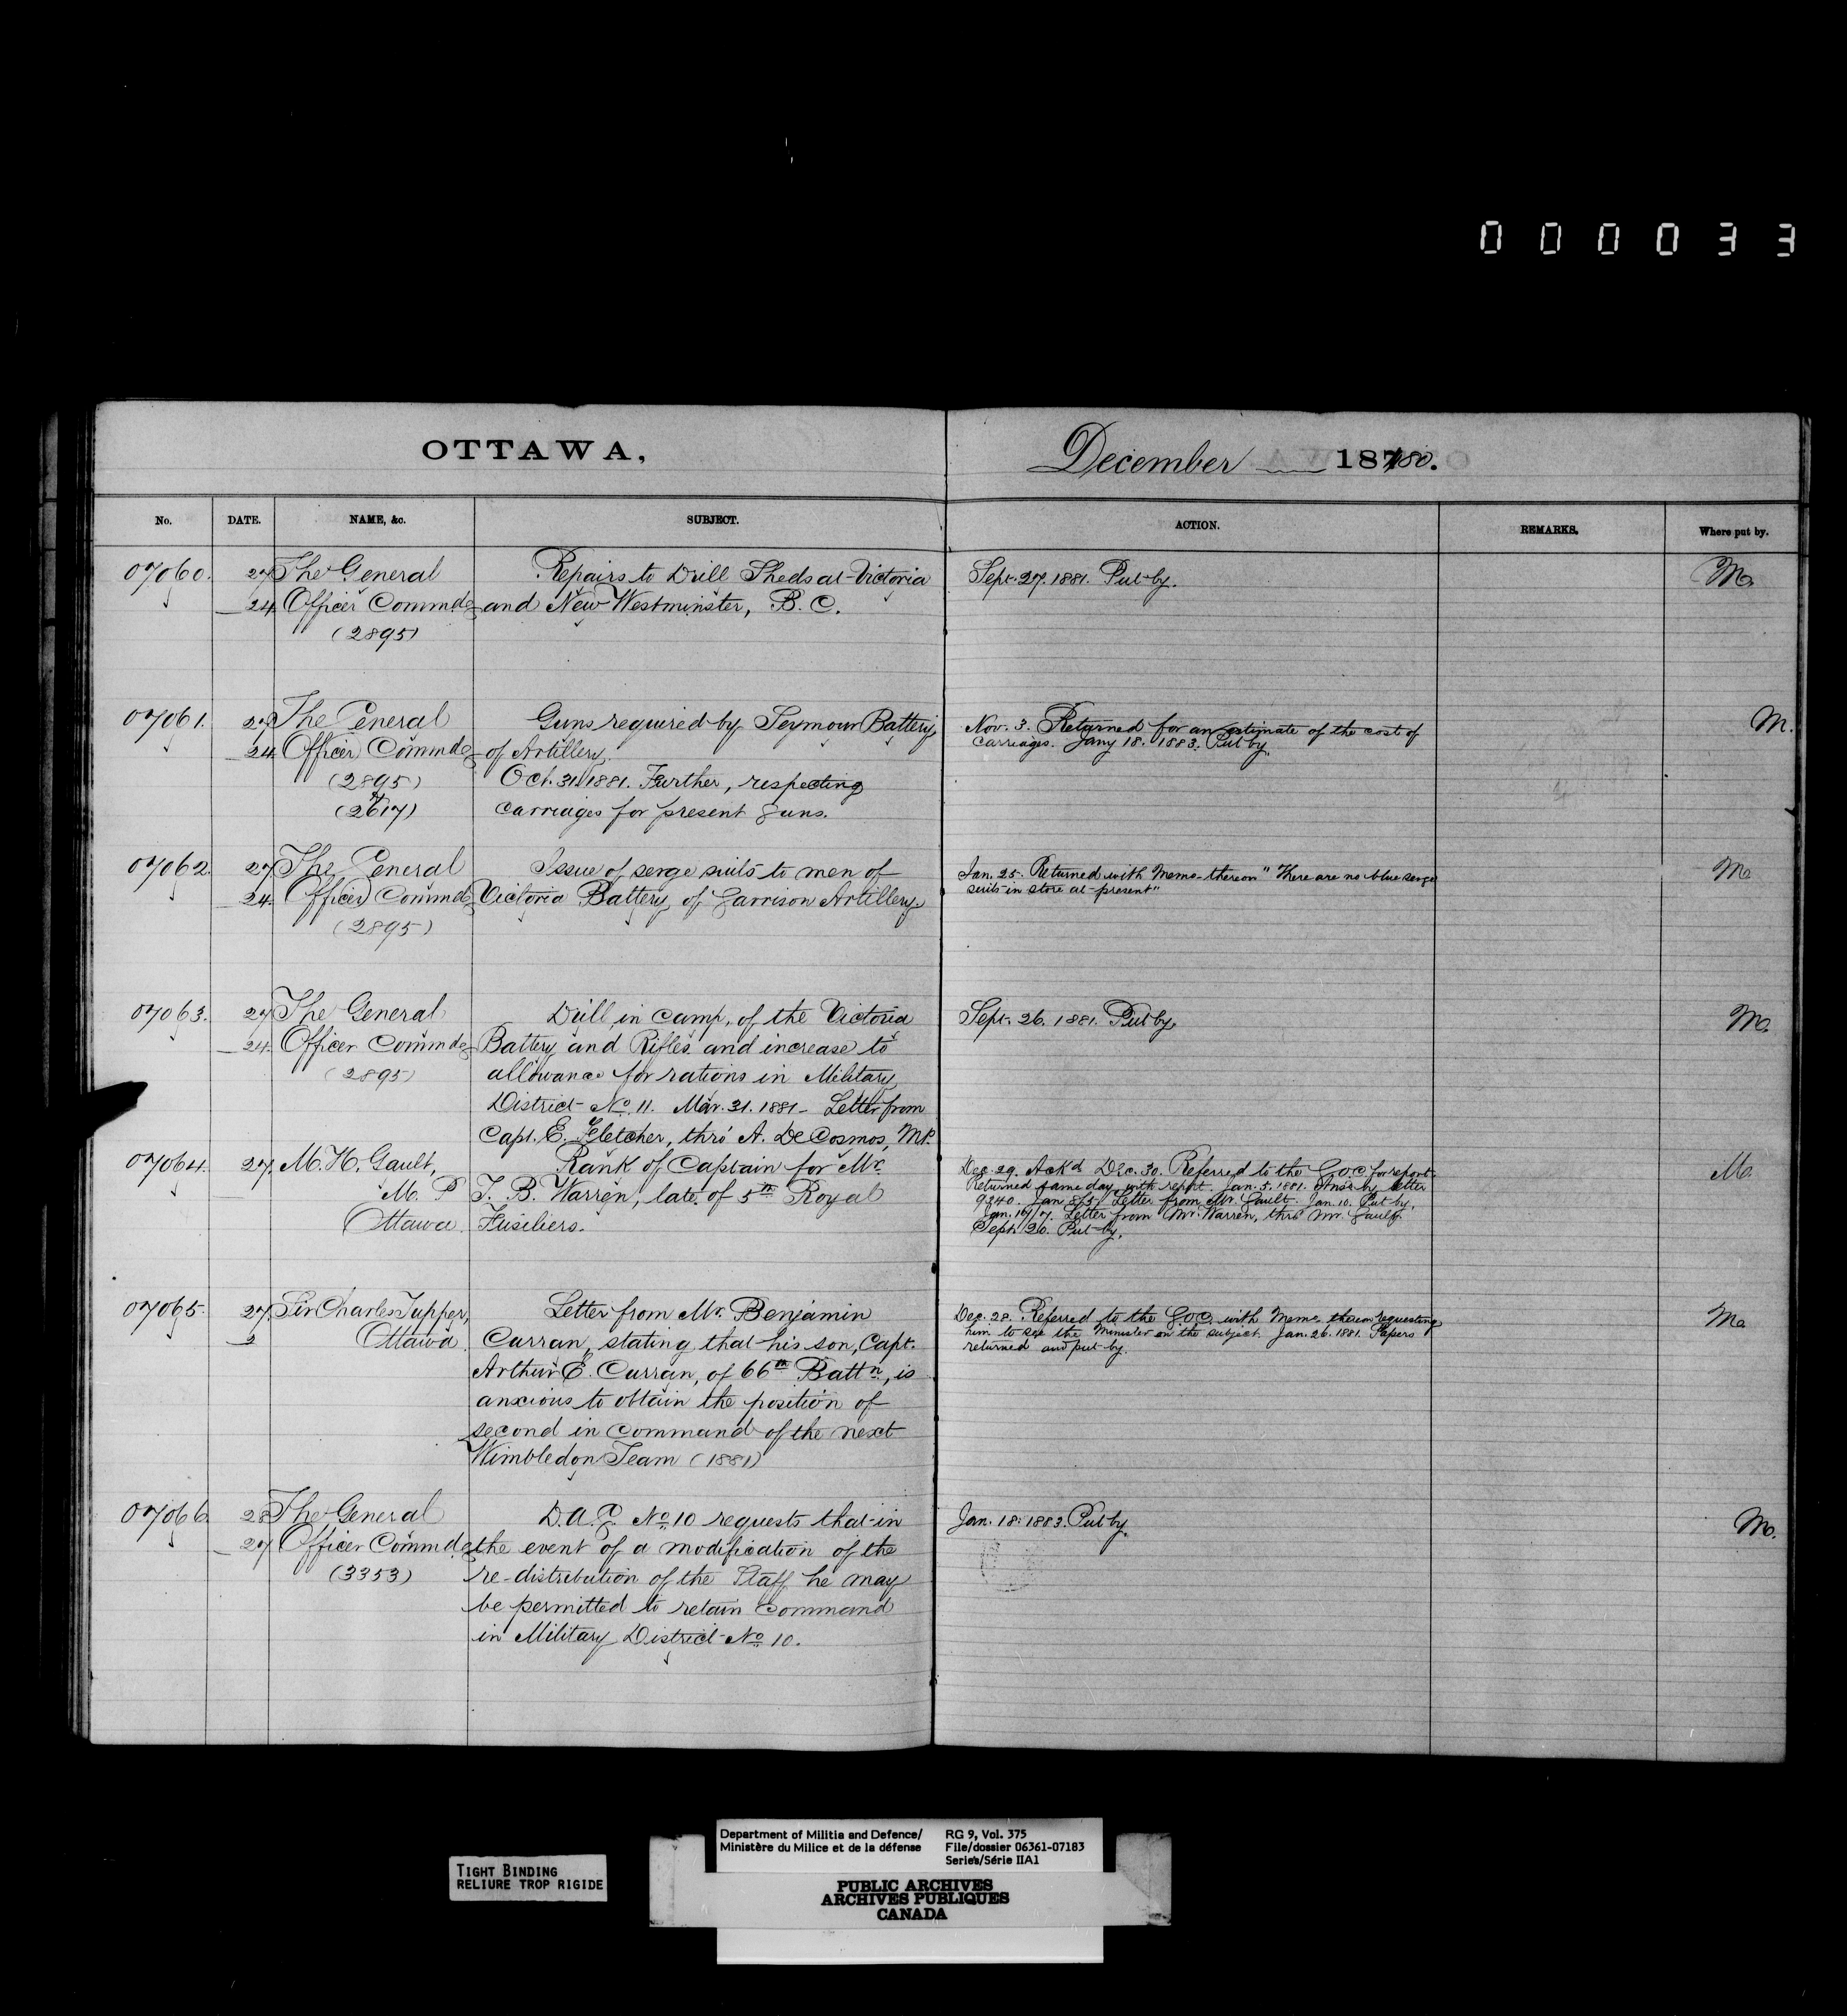 000033
OTTAWA,
December 1880.
No. DATE. NAME, &c. SUBJECT. ACTION. REMARKS. Where put by.
07060. 27 The General Repairs to Drill Sheds at Victoria Sept. 27. 1881. Put by. M.
24 Officer Commdg and New Westminster, B. C.
(2895)
07061. 27 The General Guns required by Seymour Battery Nov. 3. Returned for an estimate of the cost of M.
24 Officer Commdg of Artillery. carriages. Jany 18. 1883. Put by.
(2895) Oct. 31. 1881. Further, respecting
(2617) carriages for present guns.
07062. 27 The General Issue of serge suits to men of Jan. 25. Returned with Memo. thereon "There are no blue serge M.
24. Officer Commdg Victoria Battery of Garrison Artillery. suits in store at present"
(2895)
07063. 27 The General Drill in camp, of the Victoria Sept. 26. 1881. Put by. M.
24. Officer Commdg Battery and Rifles and increase to
(2895) allowance for rations in Military
District No. 11. Mar. 31. 1881 - Letter from
Capt. E. Fletcher, thro' A. De Cosmos, M.P.
07064. 27. M. H. Gault, Rank of Captain for Mr. Dec. 29. Ackd Dec. 30. Referred to the G.O.C. for report. M.
M. P T. B. Warren, late of 5th Royal Returned same day with report. Jan. 5. 1881. Ansr by letter
Ottawa. Fusiliers. 9240. Jan 8/5 Letter from Mr. Gault. Jan. 10. Put by.
Jan. 19/17. Letter from Mr. Warren, thro' Mr. Gault.
Sept. 20. Put by.
07065. 27. Sir Charles Tupper, Letter from Mr. Benjamin Dec. 28. Referred to the G.O.C. with Memo. thereon requesting M.
2 Ottawa. Curran, stating that his son, Capt. him to see the Minister on the subject. Jan. 26. 1881. Papers
Arthur E. Curran, of 66th Battn, is returned and put by.
anxious to obtain the position of
second in command of the next
Wimbledon Team (1881)
07066. 28 The General D.A.G. No. 10 requests that in Jan. 18. 1883. Put by. M.
27 Officer Commdg the event of a modification of the
(3353) re-distribution of the Staff he may
be permitted to retain command
in Military District No. 10.
TIGHT BINDING
RELIURE TROP RIGIDE
Department of Militia and Defence/ RG 9, Vol. 375
Ministère du Milice et de la défense File/dossier 06361-07183
Series/Série IIA1
PUBLIC ARCHIVES
ARCHIVES PUBLIQUES
CANADA